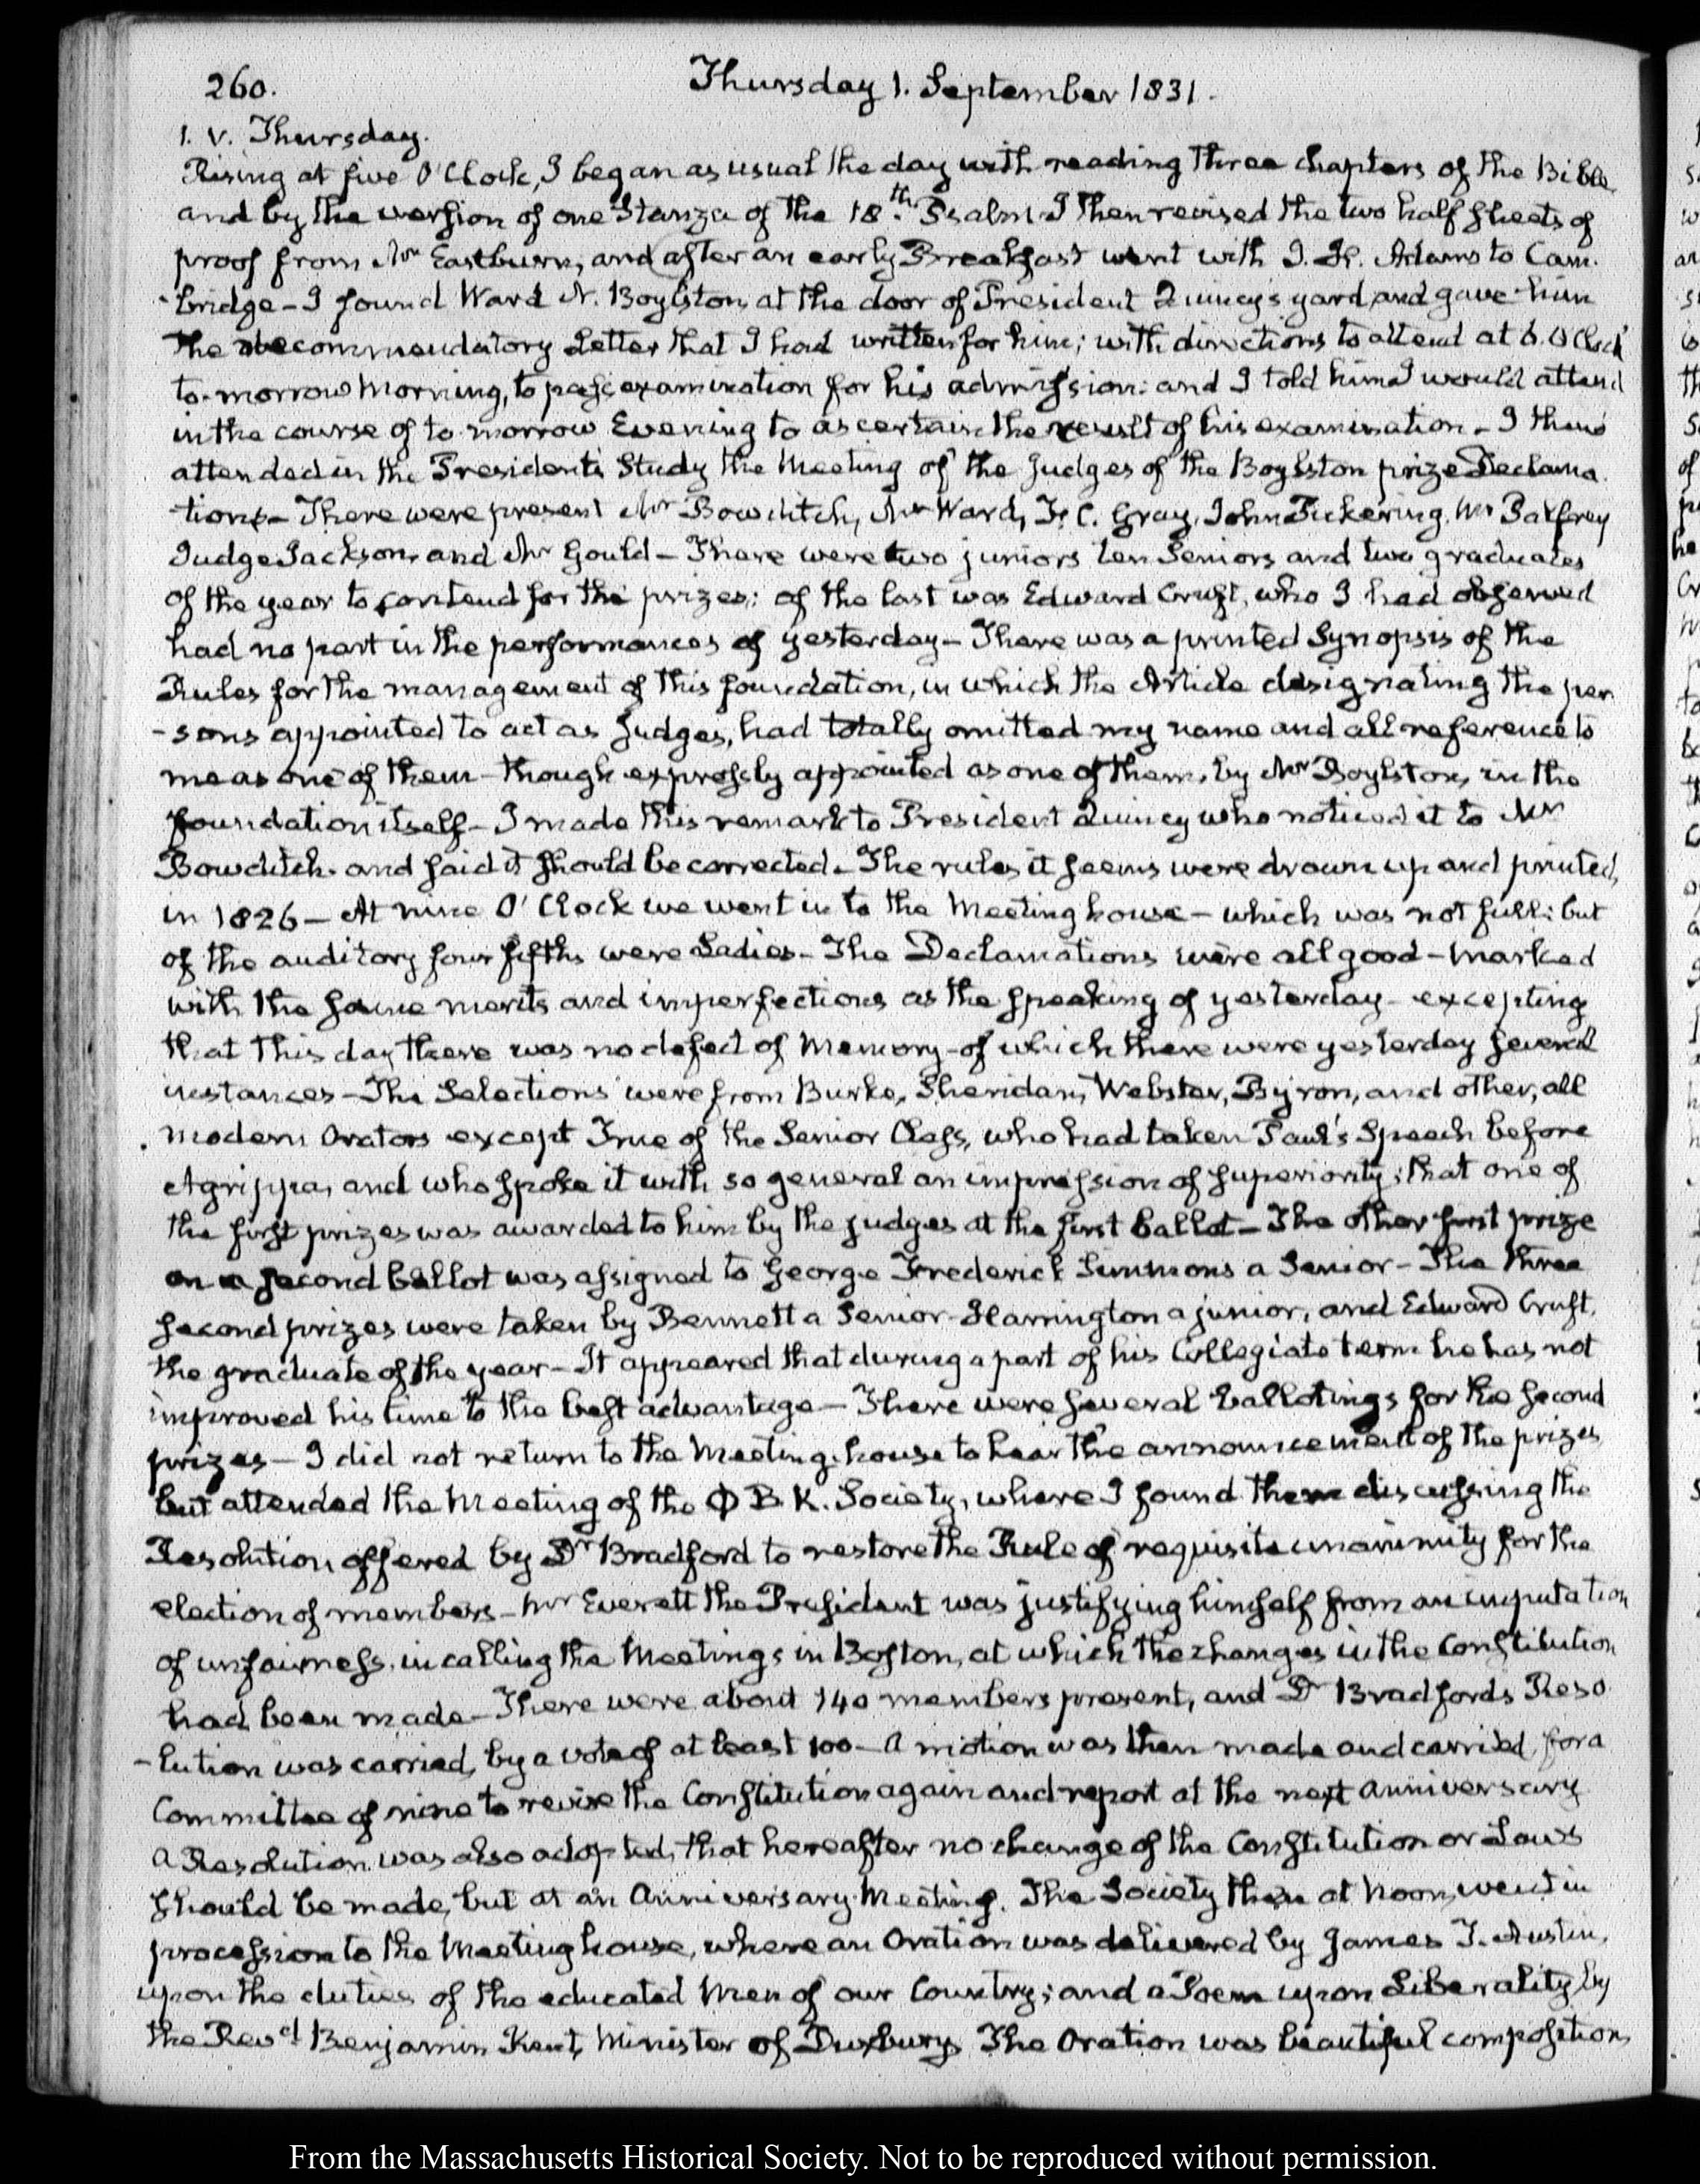 260.
Thursday 1. September 1831.
1. V. Thursday.
Rising at five O'Clock, I began as usual the day with reading three chapters of the Bible
and by the version of one Stanza of the 18.th Psalm. I then revised the two half sheets of
proof from Mr Eastburn, and after an early Breakfast went with I. H. Adams to Cam-
-bridge – I found Ward N. Boylston, at the door of President Quincy's yard, and gave him
the recommendatory Letter that I had written for him; with directions to attend at 6. O'Clock
to-morrow Morning, to pass examination for his admission: and I told him I would attend
in the course of to-morrow Evening to ascertain the result of his examination – I then
attended in the President's Study the Meeting of the Judges of the Boylston prize Declama-
tions – There were present Mr Bowditch, Mr Ward, F. C. Gray, John Pickering, Mr Palfrey
Judge Jackson, and Mr Gould – There were two juniors ten Seniors and two graduates
of the year to contend for the prizes; of the last was Edward Cruft, who I had observed
had no part in the performances of yesterday – There was a printed Synopsis of the
Rules for the management of this foundation, in which the Article designating the per
-sons appointed to act as Judges, had totally omitted my name and all reference to
me as one of them – though expressly appointed as one of them, by Mr Boylston, in the
foundation itself – I made this remark to President Quincy who noticed it to Mr
Bowditch and said it should be corrected – The rules it seems were drawn up and printed,
in 1826 – At nine O'Clock we went in to the Meeting house – which was not full: but
of the auditory four fifths were Ladies – The Declamations were all good – marked
with the same merits and imperfections as the speaking of yesterday – excepting
that this day there was no defect of Memory – of which there were yesterday several
instances – The Selections were from Burke, Sheridan, Webster, Byron, and other, all
modern Orators except True of the Senior Class, who had taken Paul's Speech before
Agrippa, and who spoke it with so general an impression of superiority; that one of
the first prizes was awarded to him by the judges at the first ballot – The other first prize
on a second ballot was assigned to George Frederick Simmons a Senior – The three
second prizes were taken by Bennett a Senior – Harrington a junior, and Edward Cruft,
the graduate of the year – It appeared that during a part of his Collegiate term he has not
improved his time to the best advantage – There were several ballotings for the second
prizes – I did not return to the Meeting-house to hear the announcement of the prizes
but attended the Meeting of the Φ B. K. Society, where I found them discussing the
Resolution offered by Dr Bradford to restore the Rule of requisite unanimity for the
election of members – Mr Everett the President was justifying himself from an imputation
of unfairness, in calling the Meetings in Boston, at which the changes in the Constitution
had been made – There were about 140 members present, and Dr Bradfords Reso
-lution was carried, by a vote of at least 100 – A motion was then made and carried for a
Committee of nine to revise the Constitution again and report at the next anniversary
A Resolution was also adopted, that hereafter no change of the Constitution or Laws
should be made, but at an Anniversary Meeting. The Society then at Noon, went in
procession to the Meeting house, where an Oration was delivered by James T. Austin,
upon the duties of the educated Men of our Country; and a Poem upon Liberality by
the Revd Benjamin Kent, Minister of Duxbury. The Oration was beautiful composition,
From the Massachusetts Historical Society. Not to be reproduced without permission.